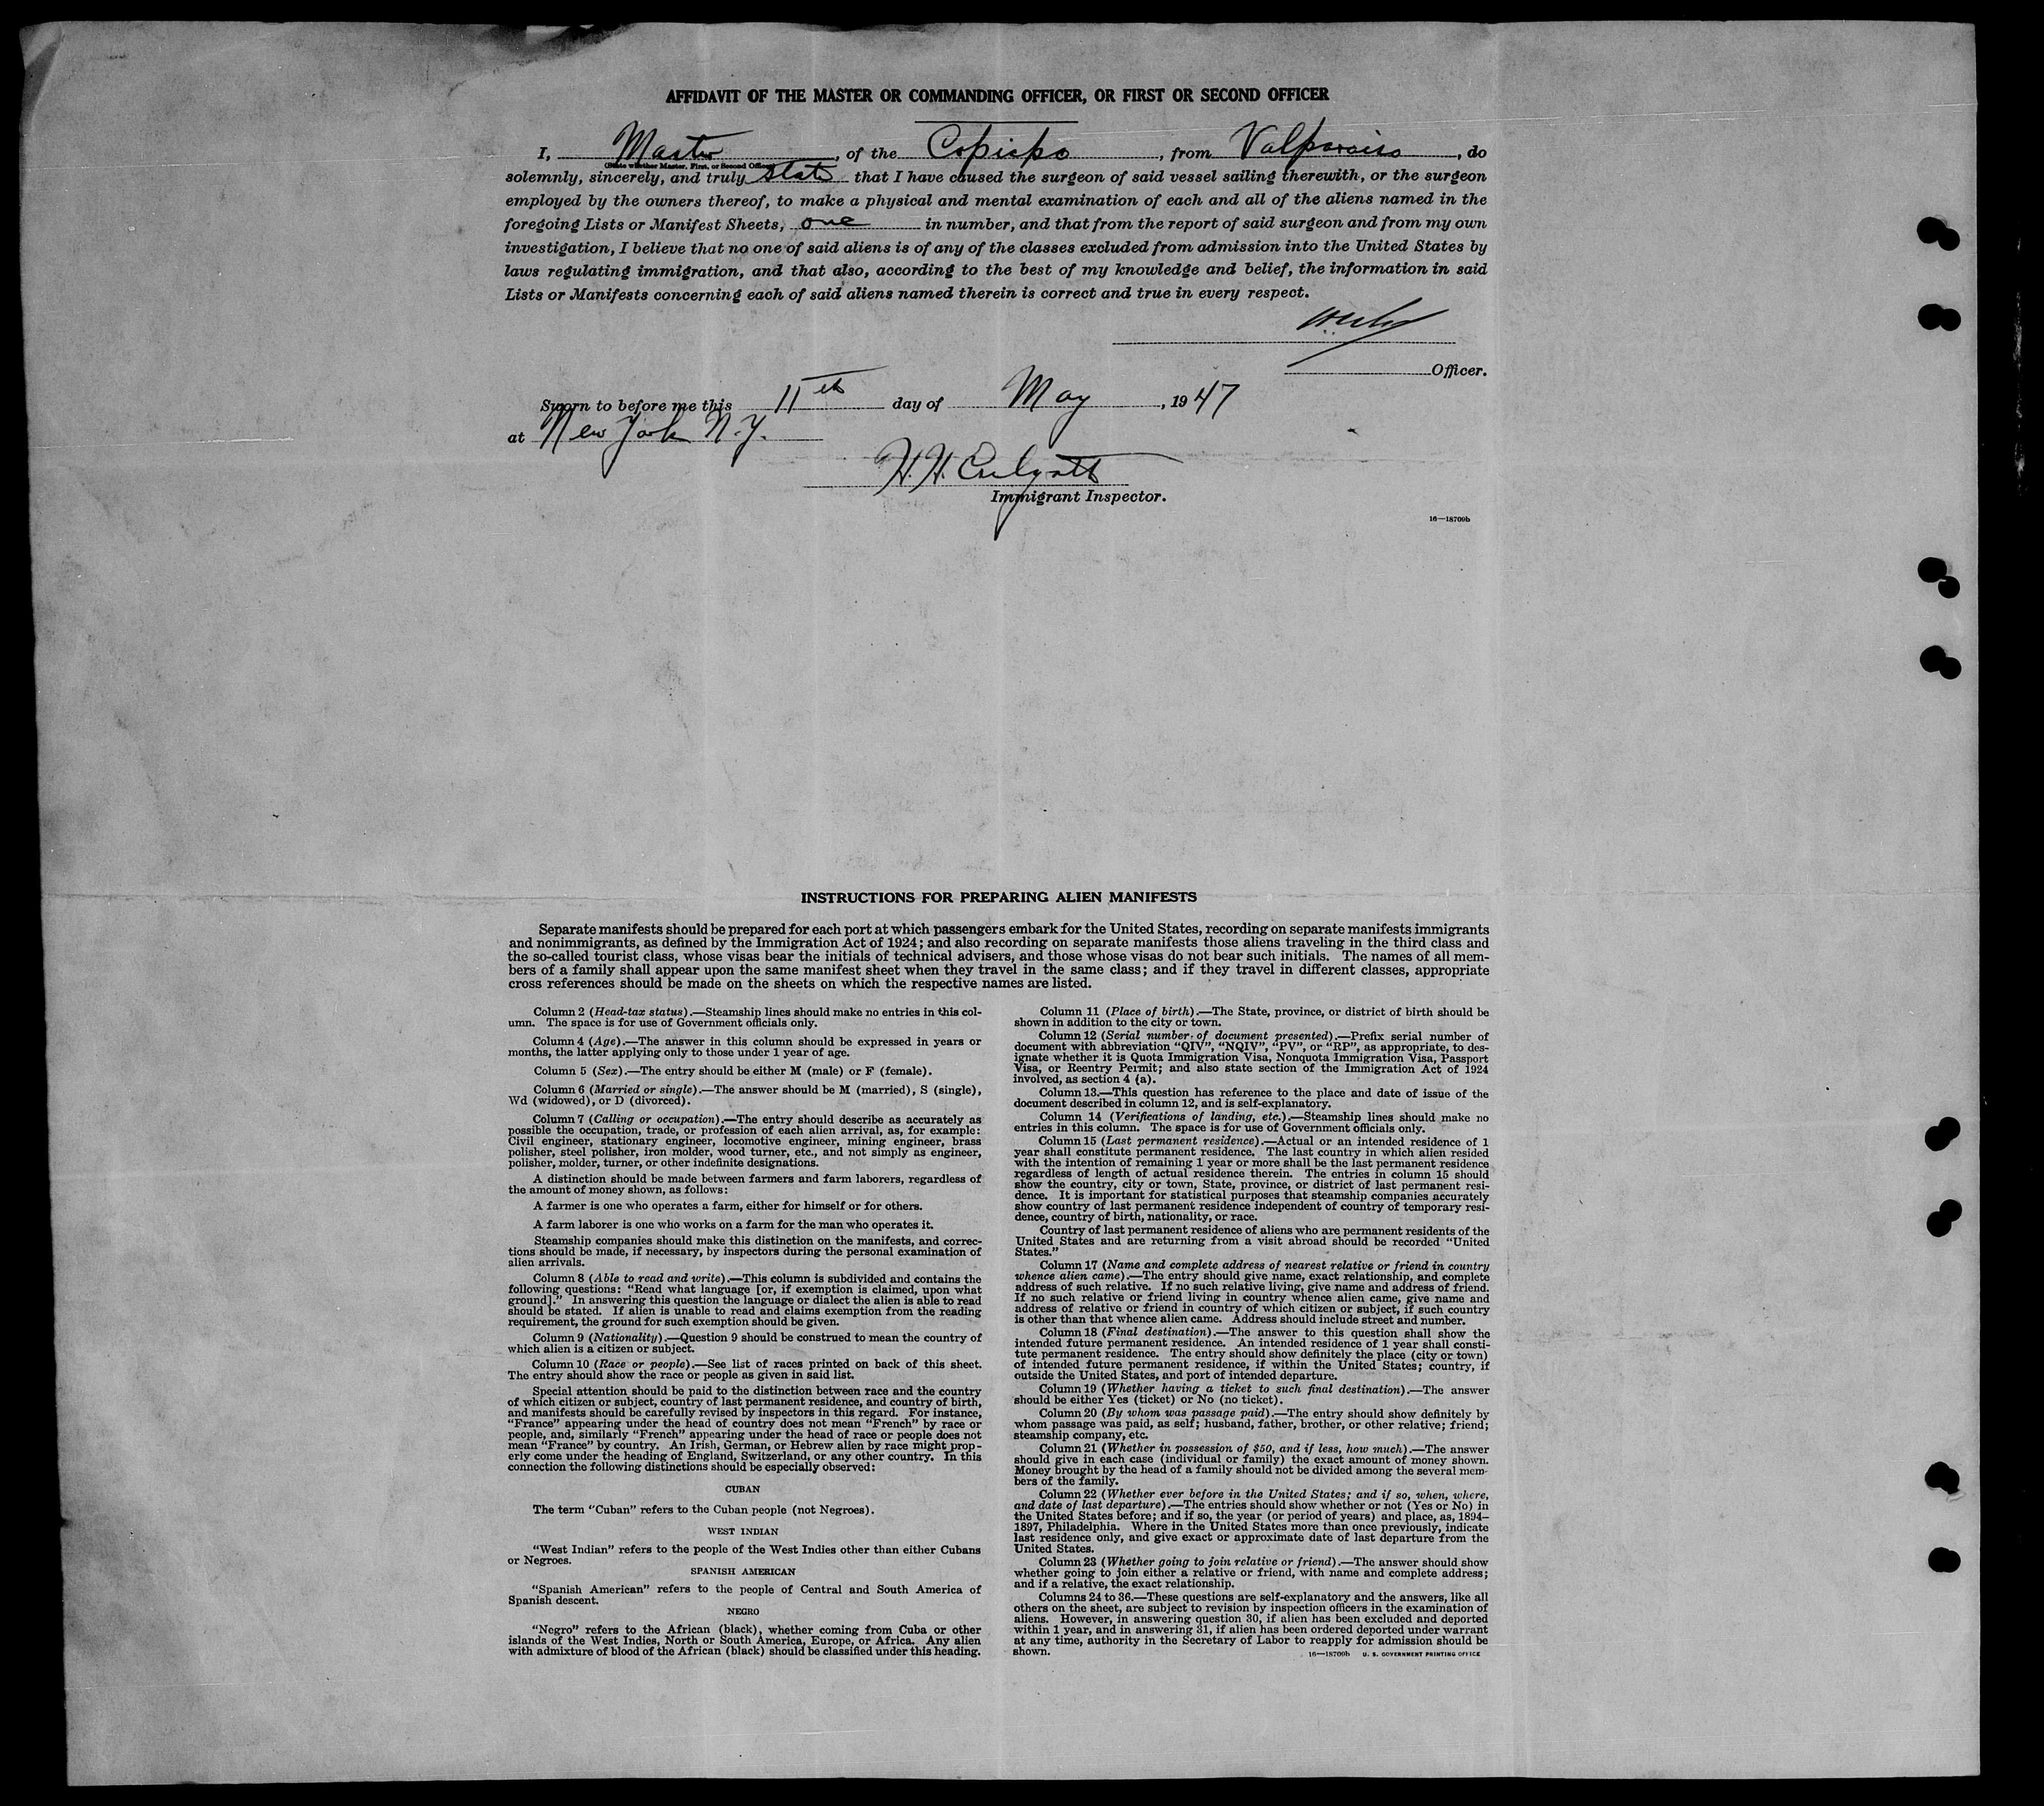 AFFIDAVIT OF THE MASTER OR COMMANDING OFFICER, OR FIRST OR SECOND OFFICER
I, Master, of the Copiapo, from Valparaiso, do
(State whether Master, First, or Second Officer)
solemnly, sincerely, and truly state that I have caused the surgeon of said vessel sailing therewith, or the surgeon
employed by the owners thereof, to make a physical and mental examination of each and all of the aliens named in the
foregoing Lists or Manifest Sheets, one in number, and that from the report of said surgeon and from my own
investigation, I believe that no one of said aliens is of any of the classes excluded from admission into the United States by
laws regulating immigration, and that also, according to the best of my knowledge and belief, the information in said
Lists or Manifests concerning each of said aliens named therein is correct and true in every respect.
Officer.
Sworn to before me this 11th day of May, 1947
at New York N.Y.
H. H.
Immigrant Inspector.
16—18709b
INSTRUCTIONS FOR PREPARING ALIEN MANIFESTS
Separate manifests should be prepared for each port at which passengers embark for the United States, recording on separate manifests immigrants
and nonimmigrants, as defined by the Immigration Act of 1924; and also recording on separate manifests those aliens traveling in the third class and
the so-called tourist class, whose visas bear the initials of technical advisers, and those whose visas do not bear such initials. The names of all mem-
bers of a family shall appear upon the same manifest sheet when they travel in the same class; and if they travel in different classes, appropriate
cross references should be made on the sheets on which the respective names are listed.
Column 2 (Head-tax status).—Steamship lines should make no entries in this col-
umn. The space is for use of Government officials only.
Column 4 (Age).—The answer in this column should be expressed in years or
months, the latter applying only to those under 1 year of age.
Column 5 (Sex).—The entry should be either M (male) or F (female).
Column 6 (Married or single).—The answer should be M (married), S (single),
Wd (widowed), or D (divorced).
Column 7 (Calling or occupation).—The entry should describe as accurately as
possible the occupation, trade, or profession of each alien arrival, as, for example:
Civil engineer, stationary engineer, locomotive engineer, mining engineer, brass
polisher, steel polisher, iron molder, wood turner, etc., and not simply as engineer,
polisher, molder, turner, or other indefinite designations.
A distinction should be made between farmers and farm laborers, regardless of
the amount of money shown, as follows:
A farmer is one who operates a farm, either for himself or for others.
A farm laborer is one who works on a farm for the man who operates it.
Steamship companies should make this distinction on the manifests, and correc-
tions should be made, if necessary, by inspectors during the personal examination of
alien arrivals.
Column 8 (Able to read and write).—This column is subdivided and contains the
following questions: "Read what language [or, if exemption is claimed, upon what
ground]." In answering this question the language or dialect the alien is able to read
should be stated. If alien is unable to read and claims exemption from the reading
requirement, the ground for such exemption should be given.
Column 9 (Nationality).—Question 9 should be construed to mean the country of
which alien is a citizen or subject.
Column 10 (Race or people).—See list of races printed on back of this sheet.
The entry should show the race or people as given in said list.
Special attention should be paid to the distinction between race and the country
of which citizen or subject, country of last permanent residence, and country of birth,
and manifests should be carefully revised by inspectors in this regard. For instance,
"France" appearing under the head of country does not mean "French" by race or
people, and, similarly "French" appearing under the head of race or people does not
mean "France" by country. An Irish, German, or Hebrew alien by race might prop-
erly come under the heading of England, Switzerland, or any other country. In this
connection the following distinctions should be especially observed:
CUBAN
The term "Cuban" refers to the Cuban people (not Negroes).
WEST INDIAN
"West Indian" refers to the people of the West Indies other than either Cubans
or Negroes.
SPANISH AMERICAN
"Spanish American" refers to the people of Central and South America of
Spanish descent.
NEGRO
"Negro" refers to the African (black), whether coming from Cuba or other
islands of the West Indies, North or South America, Europe, or Africa. Any alien
with admixture of blood of the African (black) should be classified under this heading.
Column 11 (Place of birth).—The State, province, or district of birth should be
shown in addition to the city or town.
Column 12 (Serial number of document presented).—Prefix serial number of
document with abbreviation "QIV", "NQIV", "PV", or "RP", as appropriate, to des-
ignate whether it is Quota Immigration Visa, Nonquota Immigration Visa, Passport
Visa, or Reentry Permit; and also state section of the Immigration Act of 1924
involved, as section 4 (a).
Column 13.—This question has reference to the place and date of issue of the
document described in column 12, and is self-explanatory.
Column 14 (Verifications of landing, etc.).—Steamship lines should make no
entries in this column. The space is for use of Government officials only.
Column 15 (Last permanent residence).—Actual or an intended residence of 1
year shall constitute permanent residence. The last country in which alien resided
with the intention of remaining 1 year or more shall be the last permanent residence
regardless of length of actual residence therein. The entries in column 15 should
show the country, city or town, State, province, or district of last permanent resi-
dence. It is important for statistical purposes that steamship companies accurately
show country of last permanent residence independent of country of temporary resi-
dence, country of birth, nationality, or race.
Country of last permanent residence of aliens who are permanent residents of the
United States and are returning from a visit abroad should be recorded "United
States."
Column 17 (Name and complete address of nearest relative or friend in country
whence alien came).—The entry should give name, exact relationship, and complete
address of such relative. If no such relative living, give name and address of friend.
If no such relative or friend living in country whence alien came, give name and
address of relative or friend in country of which citizen or subject, if such country
is other than that whence alien came. Address should include street and number.
Column 18 (Final destination).—The answer to this question shall show the
intended future permanent residence. An intended residence of 1 year shall consti-
tute permanent residence. The entry should show definitely the place (city or town)
of intended future permanent residence, if within the United States; country, if
outside the United States, and port of intended departure.
Column 19 (Whether having a ticket to such final destination).—The answer
should be either Yes (ticket) or No (no ticket).
Column 20 (By whom was passage paid).—The entry should show definitely by
whom passage was paid, as self; husband, father, brother, or other relative; friend;
steamship company, etc.
Column 21 (Whether in possession of $50, and if less, how much).—The answer
should give in each case (individual or family) the exact amount of money shown.
Money brought by the head of a family should not be divided among the several mem-
bers of the family.
Column 22 (Whether ever before in the United States; and if so, when, where,
and date of last departure).—The entries should show whether or not (Yes or No) in
the United States before; and if so, the year (or period of years) and place, as, 1894–
1897, Philadelphia. Where in the United States more than once previously, indicate
last residence only, and give exact or approximate date of last departure from the
United States.
Column 23 (Whether going to join relative or friend).—The answer should show
whether going to join either a relative or friend, with name and complete address;
and if a relative, the exact relationship.
Columns 24 to 36.—These questions are self-explanatory and the answers, like all
others on the sheet, are subject to revision by inspection officers in the examination of
aliens. However, in answering question 30, if alien has been excluded and deported
within 1 year, and in answering 31, if alien has been ordered deported under warrant
at any time, authority in the Secretary of Labor to reapply for admission should be
shown.
16—18709b U. S. GOVERNMENT PRINTING OFFICE